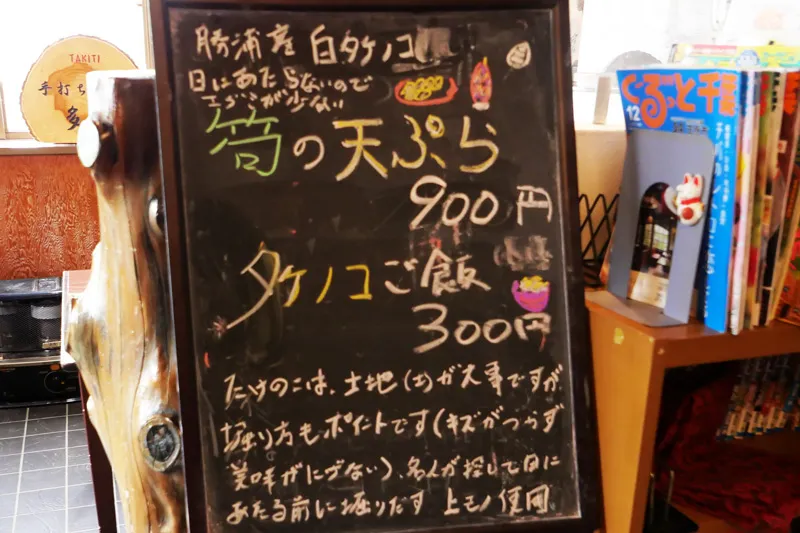 勝浦産 白タケノコ
日にあたらないので
エグミが少ない
筍の天ぷら
900円
タケノコご飯
300円
たけのこは、土地(土)が大事ですが
堀り方もポイントです(キズがつかず
美味がにげない)、名人が探して日に
あたる前に堀りだす 上モノ使用
TAKITI
手打ち
多
ぐるっと千葉
12